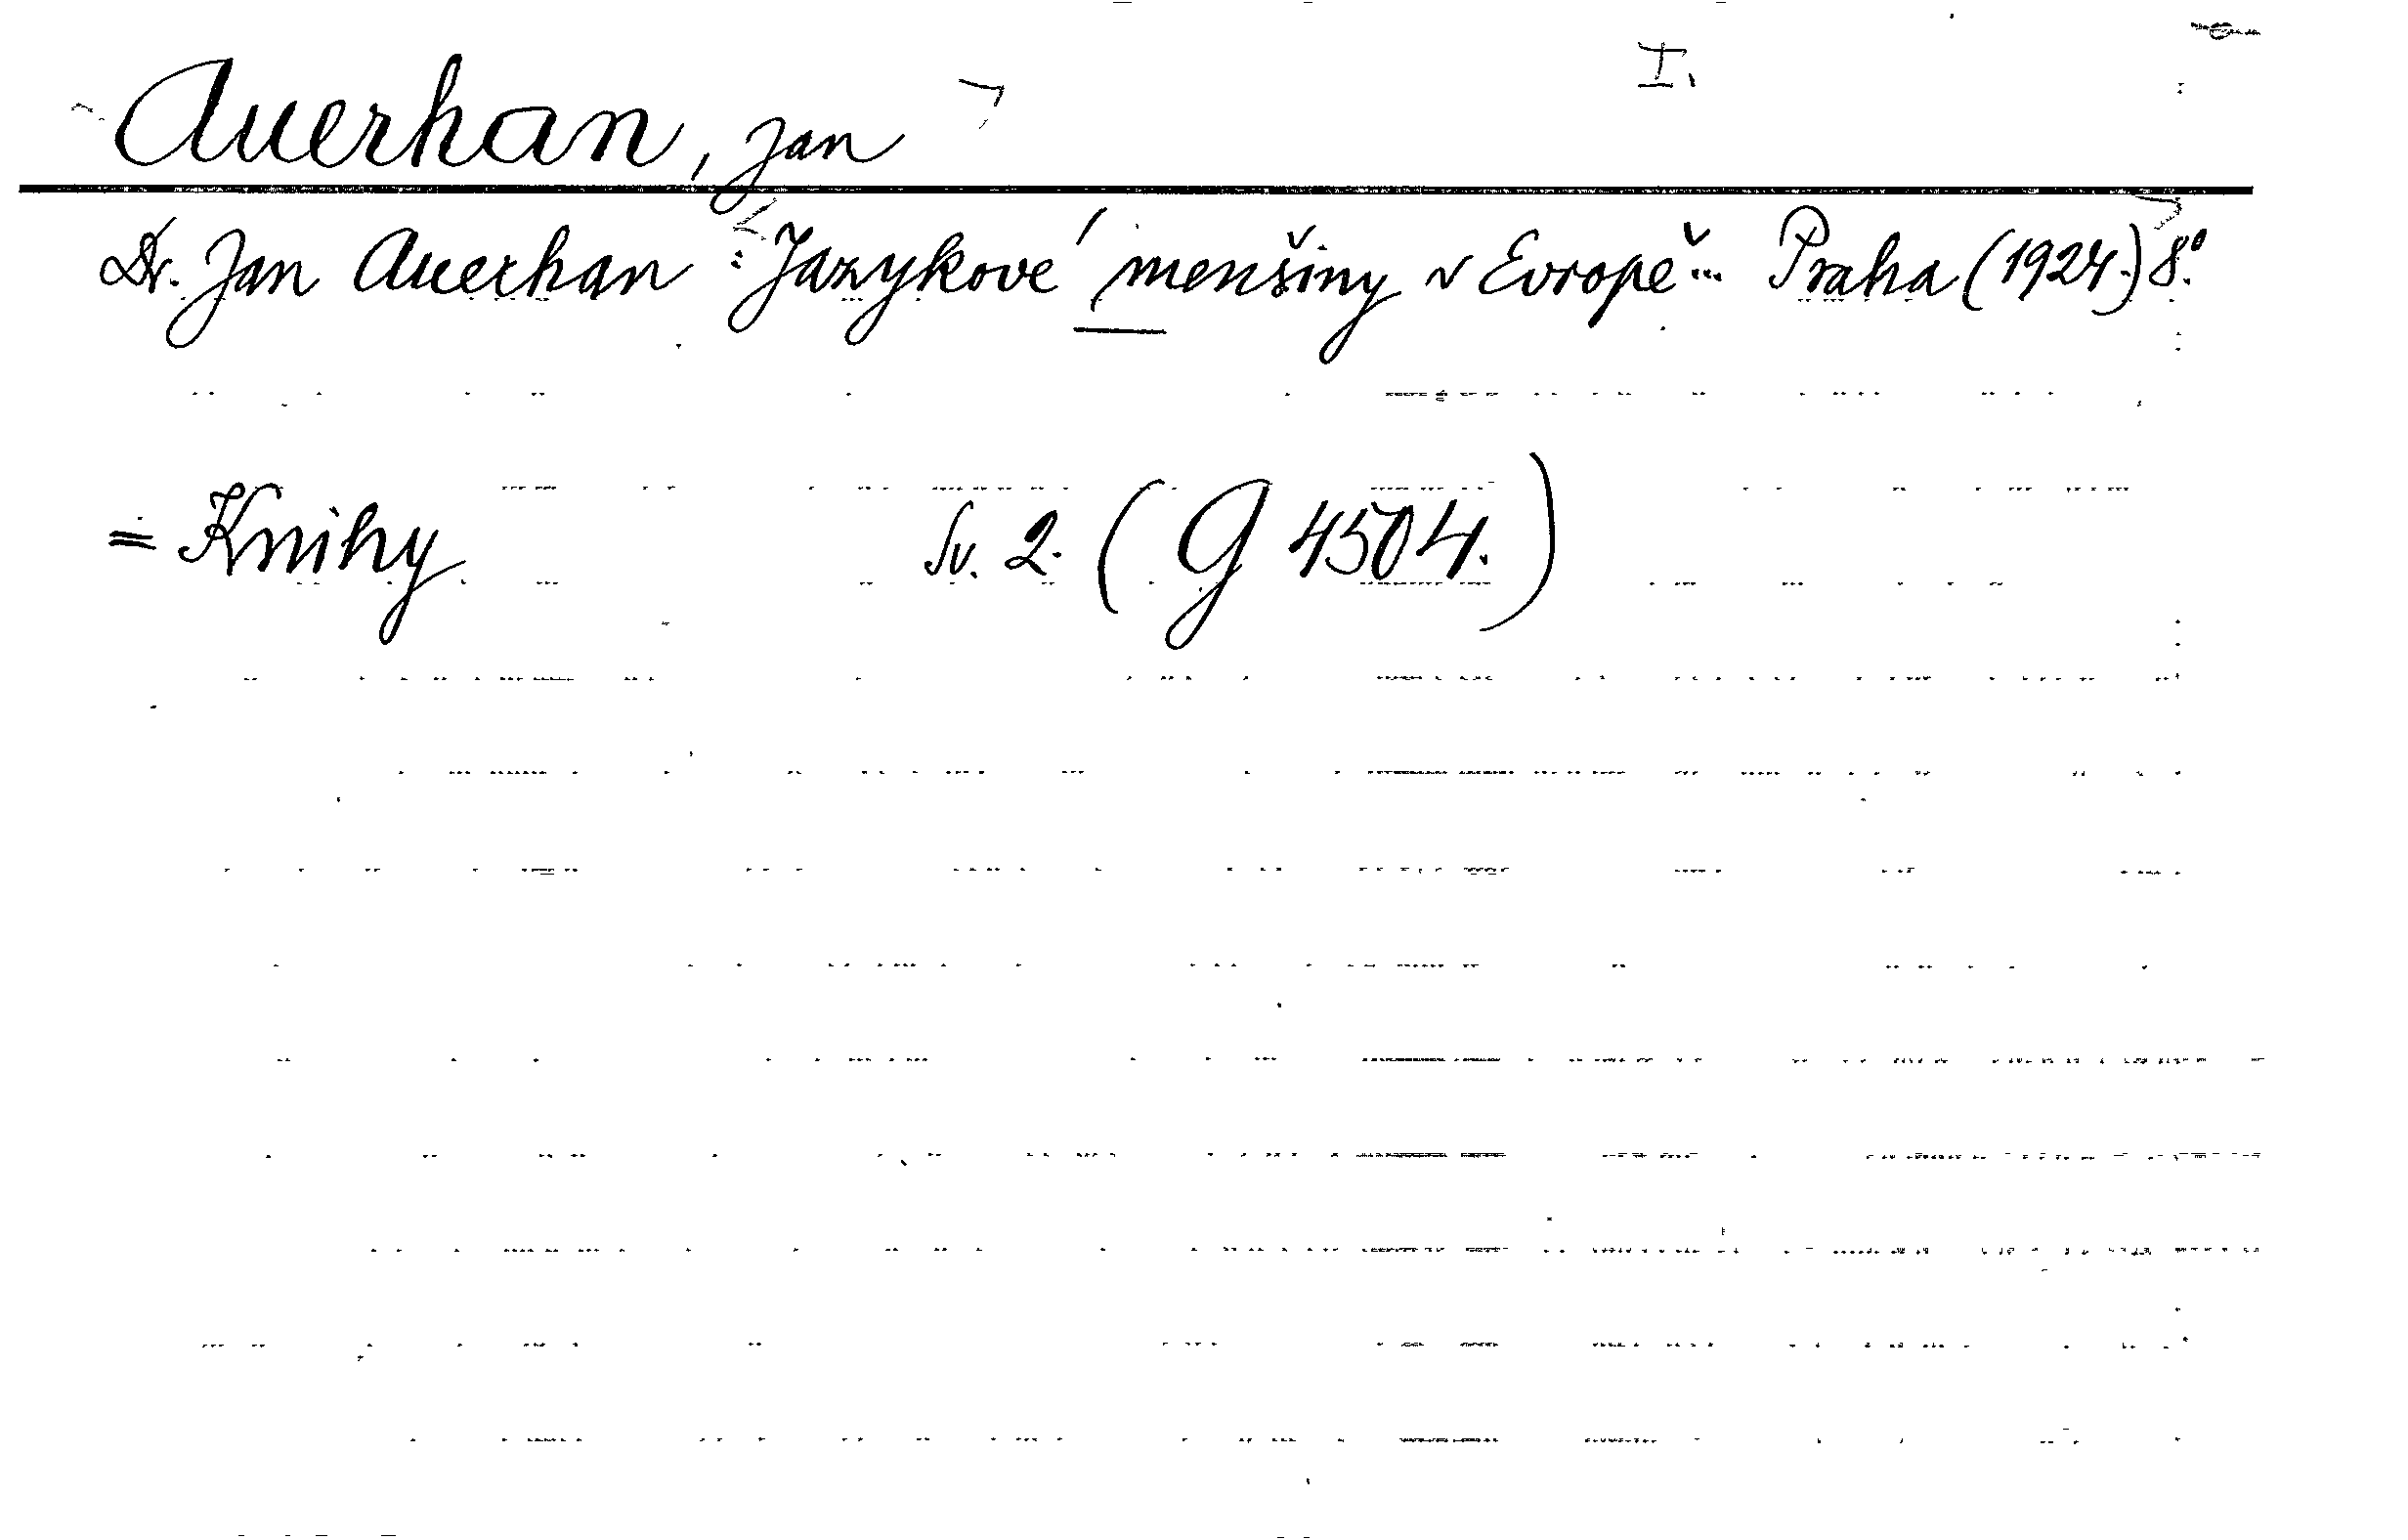 I.
Auerhan, Jan
Dr. Jan Auerhan: Jazykové menšiny v Evropě... Praha (1924.) 8°.
= Knihy Sv. 2. (G 4504.)